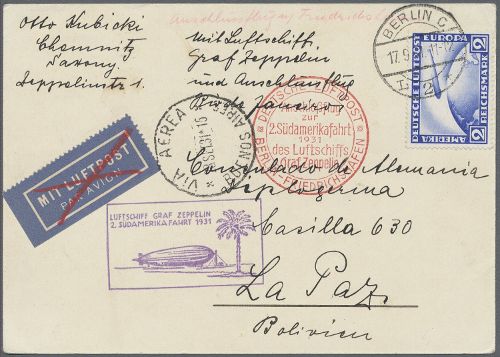 Otto Kubicki
Chemnitz
Saxony.
Zeppelinstr. 1
Mit Luftschiff
Graf Zeppelin
und Anschlussflug
Rio de Janeiro
BERLIN C
17.9
2
EUROPA
DEUTSCHE LUFTPOST
DEUTSCHE REICHSPOST
2 MARK 2
AMERIKA
DEUTSCHE LUFTPOST
Anschlußflug
zur
2. Südamerikafahrt
1931
des Luftschiffs
Graf Zeppelin
BERLIN-FRIEDRICHSHAFEN
VIA AEREA
BUENOS AIRES
MIT LUFTPOST
PAR AVION
LUFTSCHIFF GRAF ZEPPELIN
2. SÜDAMERIKAFAHRT 1931
Consulado de Alemania
Casilla 630
La Paz
Bolivien